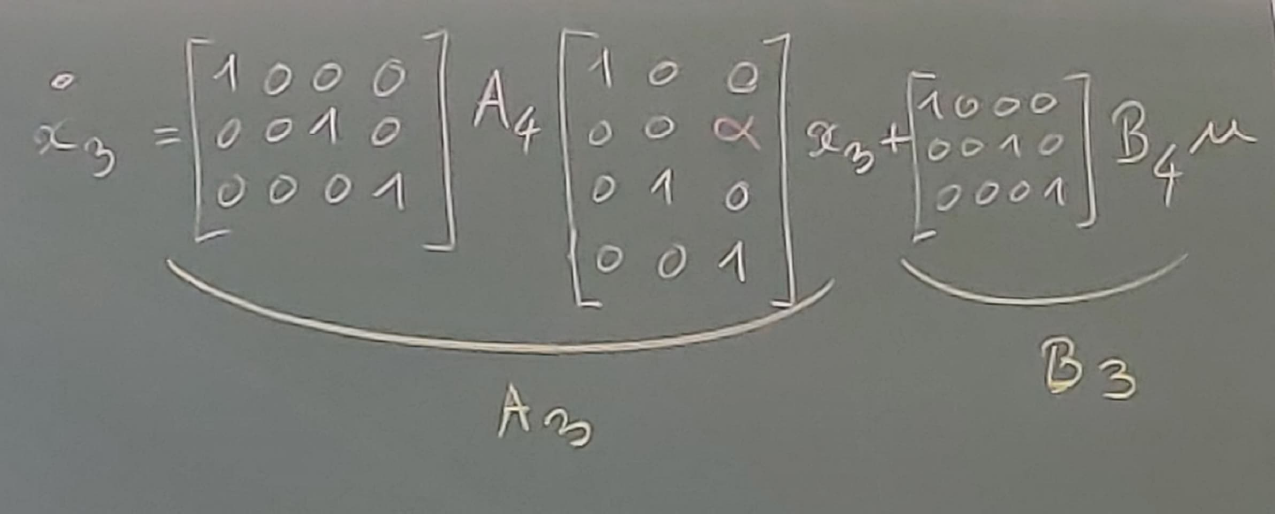 ẋ₃ = [1 0 0 0; 0 0 1 0; 0 0 0 1] A₄ [1 0 0; 0 0 α; 0 1 0; 0 0 1] x₃ + [1 0 0 0; 0 0 1 0; 0 0 0 1] B₄ u
A₃ B₃